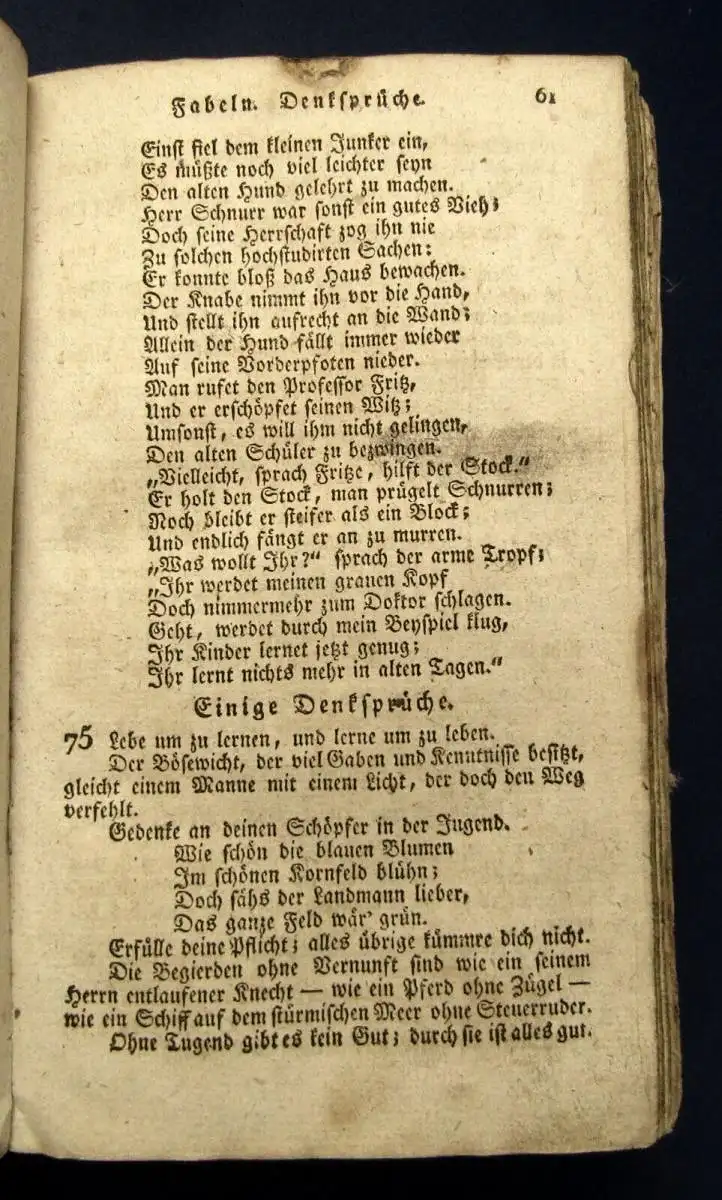 Fabeln. Denksprüche. 61
Einst fiel dem kleinen Junker ein,
Es müßte noch viel leichter seyn
Den alten Hund gelehrt zu machen.
Herr Schnurr war sonst ein gutes Vieh;
Doch seine Herrschaft zog ihn nie
Zu solchen hochstudirten Sachen:
Er konnte bloß das Haus bewachen.
Der Knabe nimmt ihn vor die Hand,
Und stellt ihn aufrecht an die Wand;
Allein der Hund fällt immer wieder
Auf seine Vorderpfoten nieder.
Man rufet den Professor Fritz,
Und er erschöpfet seinen Witz;
Umsonst, es will ihm nicht gelingen,
Den alten Schüler zu bezwingen.
„Vielleicht, sprach Fritze, hilft der Stock.“
Er holt den Stock, man prügelt Schnurren;
Noch bleibt er steifer als ein Block;
Und endlich fängt er an zu murren.
„Was wollt Ihr?“ sprach der arme Tropf;
„Ihr werdet meinen grauen Kopf
Doch nimmermehr zum Doktor schlagen.
Geht, werdet durch mein Beyspiel klug,
Ihr Kinder lernet jetzt genug;
Ihr lernt nichts mehr in alten Tagen.“
Einige Denksprüche.
75 Lebe um zu lernen, und lerne um zu leben.
Der Bösewicht, der viel Gaben und Kenntnisse besitzt,
gleicht einem Manne mit einem Licht, der doch den Weg
verfehlt.
Gedenke an deinen Schöpfer in der Jugend.
Wie schön die blauen Blumen
Im schönen Kornfeld blühn;
Doch sähs der Landmann lieber,
Das ganze Feld wär' grün.
Erfülle deine Pflicht; alles übrige kümmre dich nicht.
Die Begierden ohne Vernunft sind wie ein seinem
Herrn entlaufener Knecht — wie ein Pferd ohne Zügel —
wie ein Schiff auf dem stürmischen Meer ohne Steuerruder.
Ohne Tugend gibt es kein Gut; durch sie ist alles gut.